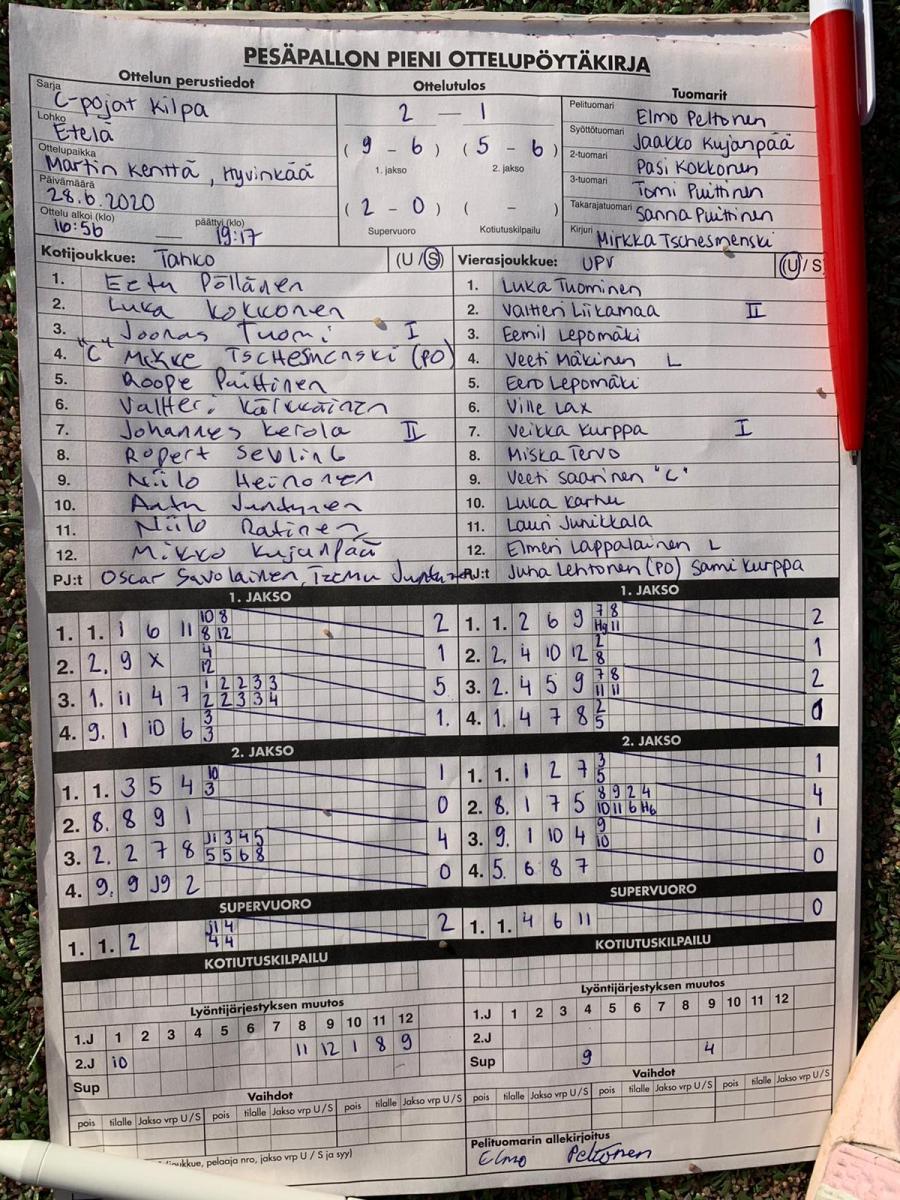 PESÄPALLON PIENI OTTELUPÖYTÄKIRJA
Ottelun perustiedot Ottelutulos Tuomarit
Sarja C-pojat Kilpa
Lohko Etelä
Ottelupaikka Martin Kenttä, Hyvinkää
Päivämäärä 28.6.2020
Ottelu alkoi (klo) 16:56 päättyi (klo) 19:17
2 — 1
(9 - 6) (5 - 6)
1. jakso 2. jakso
(2 - 0) ( - )
Supervuoro Kotiutuskilpailu
Pelituomari Elmo Peltonen
Syöttötuomari Jaakko Kujanpää
2-tuomari Pasi Kokkonen
3-tuomari Tomi Puittinen
Takarajatuomari Sanna Puittinen
Kirjuri Mirkka Tschesmenski
Kotijoukkue: Tahko (U / S)
1. Eetu Pöllänen
2. Luka Kokkonen
3. Joonas Tuomi I
4. "C" Mikke Tschesmenski (PO)
5. Roope Puittinen
6. Valtteri Kälkkäinen
7. Johannes Kerola II
8. Ropert Sevling
9. Niilo Heinonen
10. Antu Juntunen
11. Niilo Ratinen
12. Mikko Kujanpää
PJ:t Oscar Savolainen, Teemu
Vierasjoukkue: UPV (U / S)
1. Luka Tuominen
2. Valtteri Liikamaa II
3. Eemil Lepomäki
4. Veeti Mäkinen L
5. Eero Lepomäki
6. Ville Lax
7. Veikka Kurppa I
8. Miska Tervo
9. Veeti Saarinen "C"
10. Luka Karhu
11. Lauri Junikkala
12. Elmeri Lappalainen L
PJ:t Juha Lehtonen (PO) Sami Kurppa
1. JAKSO
1. 1. 1 6 11 10 8 2
8 12
2. 2. 9 X 4 1
12
3. 1. 11 4 7 1 2 2 3 3 5
2 2 3 3 4
4. 9. 1 10 6 3 1.
3
2. JAKSO
1. 1. 3 5 4 10 1
3
2. 8. 8 9 1 0
3. 2. 2 7 8 J1 3 4 5 4
5 5 6 8
4. 9. 9 J9 2 0
SUPERVUORO
1. 1. 2 J1 4 2
4 4
KOTIUTUSKILPAILU
1. JAKSO
1. 1. 2 6 9 7 8 2
Hg 11
2. 2. 4 10 12 2 1
8
3. 2. 4 5 9 7 8 2
11 11
4. 1. 4 7 8 2 0
5
2. JAKSO
1. 1. 1 2 7 3 1
5
2. 8. 1 7 5 8 9 2 4 4
10 11 6 H6
3. 9. 1 10 4 9 1
10
4. 5. 6 8 7 0
SUPERVUORO
1. 1. 4 6 11 0
KOTIUTUSKILPAILU
Lyöntijärjestyksen muutos
1.J 1 2 3 4 5 6 7 8 9 10 11 12
2.J 10 11 12 1 8 9
Sup
Vaihdot
pois tilalle Jakso vrp U / S pois tilalle Jakso vrp U / S pois tilalle Jakso vrp U / S
Lyöntijärjestyksen muutos
1.J 1 2 3 4 5 6 7 8 9 10 11 12
2.J
Sup 9 4
Vaihdot
pois tilalle Jakso vrp U / S pois tilalle Jakso vrp U / S pois tilalle Jakso vrp U / S
pelaaja nro, jakso vrp U / S ja syy)
Pelituomarin allekirjoitus
Elmo Peltonen